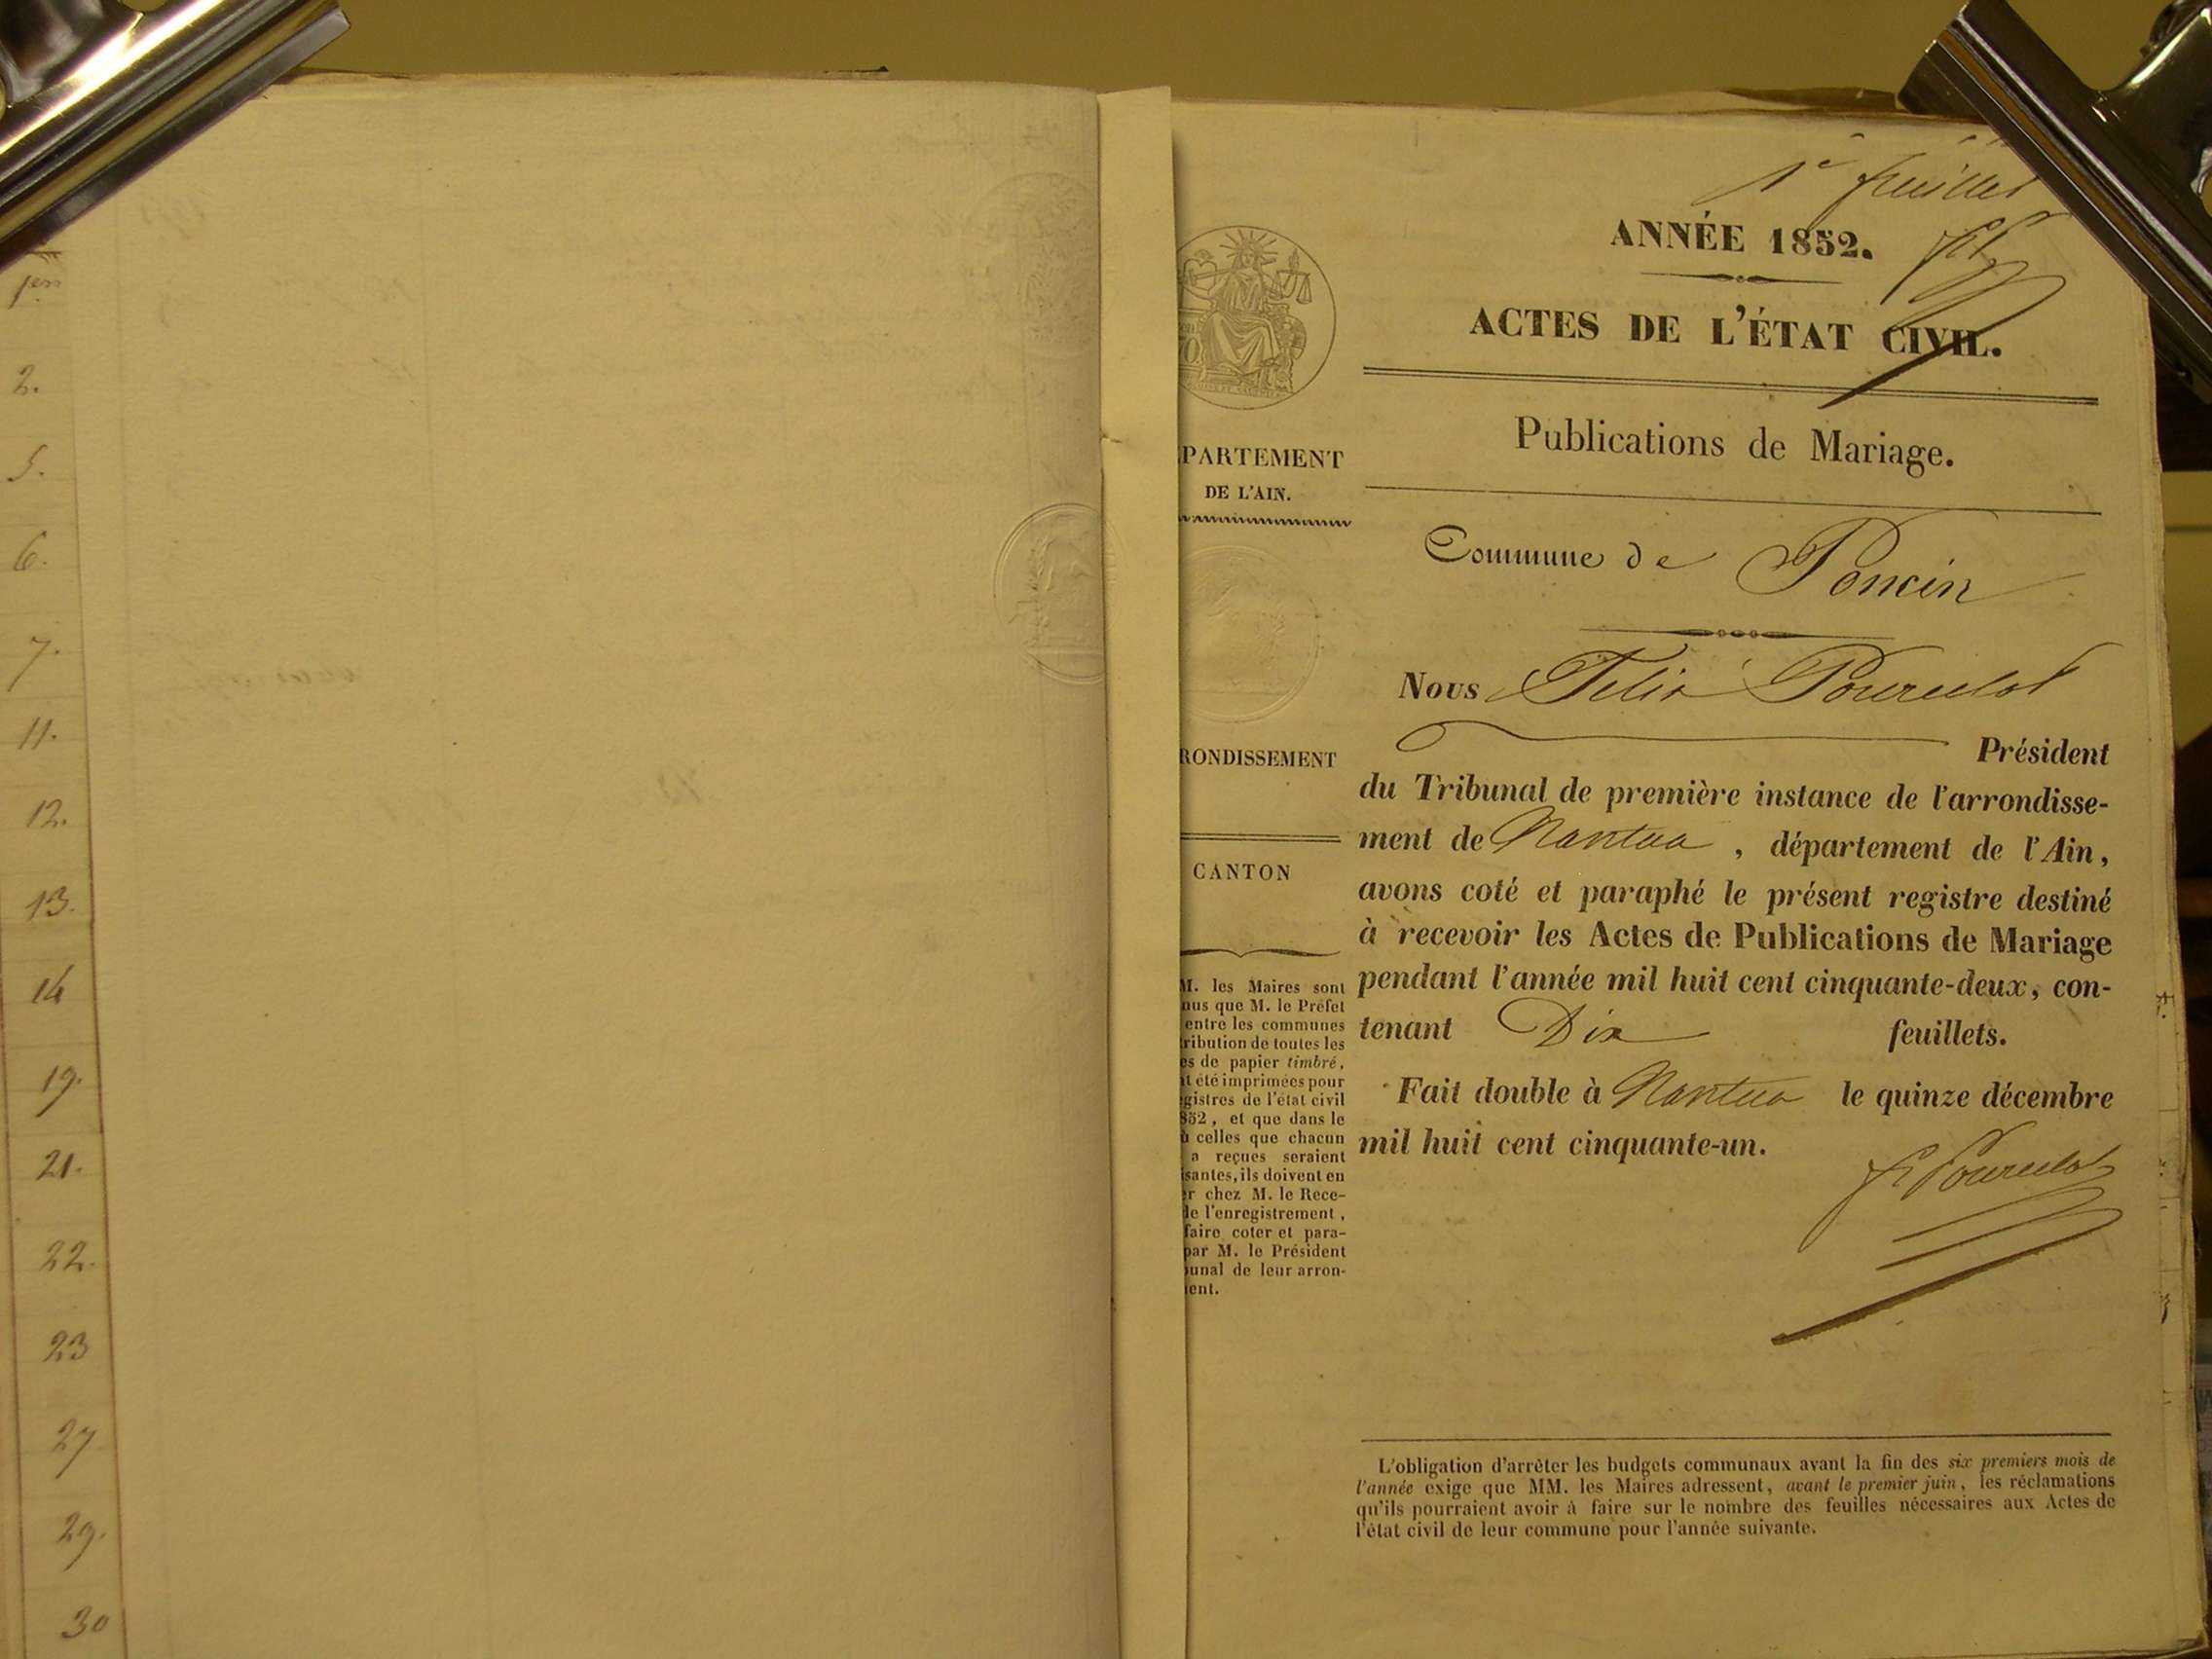 1er
2.
5.
6.
7.
11.
12.
13.
14
19.
21.
22.
23
27
29.
30
1er feuillet
ANNÉE 1852.
ACTES DE L'ÉTAT CIVIL.
Publications de Mariage.
PARTEMENT
DE L'AIN.
RONDISSEMENT
CANTON
M. les Maires sont
nus que M. le Préfet
entre les communes
ribution de toutes les
es de papier timbré,
t été imprimées pour
gistres de l'état civil
852, et que dans le
ù celles que chacun
a reçues seraient
santes, ils doivent en
r chez M. le Rece-
de l'enregistrement,
faire coter et para-
par M. le Président
unal de leur arron-
ent.
Commune de Poncin
Nous Félix Pourcelot
Président
du Tribunal de première instance de l'arrondisse-
ment de Nantua, département de l'Ain,
avons coté et paraphé le présent registre destiné
à recevoir les Actes de Publications de Mariage
pendant l'année mil huit cent cinquante-deux, con-
tenant Dix feuillets.
Fait double à Nantua le quinze décembre
mil huit cent cinquante-un.
F. Pourcelot
L'obligation d'arrêter les budgets communaux avant la fin des six premiers mois de
l'année exige que MM. les Maires adressent, avant le premier juin, les réclamations
qu'ils pourraient avoir à faire sur le nombre des feuilles nécessaires aux Actes de
l'état civil de leur commune pour l'année suivante.